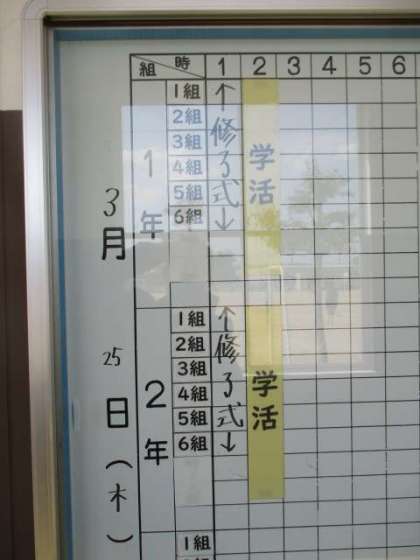 3月25日(木)
組 時 1 2 3 4 5 6
1年
1組
2組
3組
4組
5組
6組
↑修了式↓
学活
2年
1組
2組
3組
4組
5組
6組
↑修了式↓
学活
1組